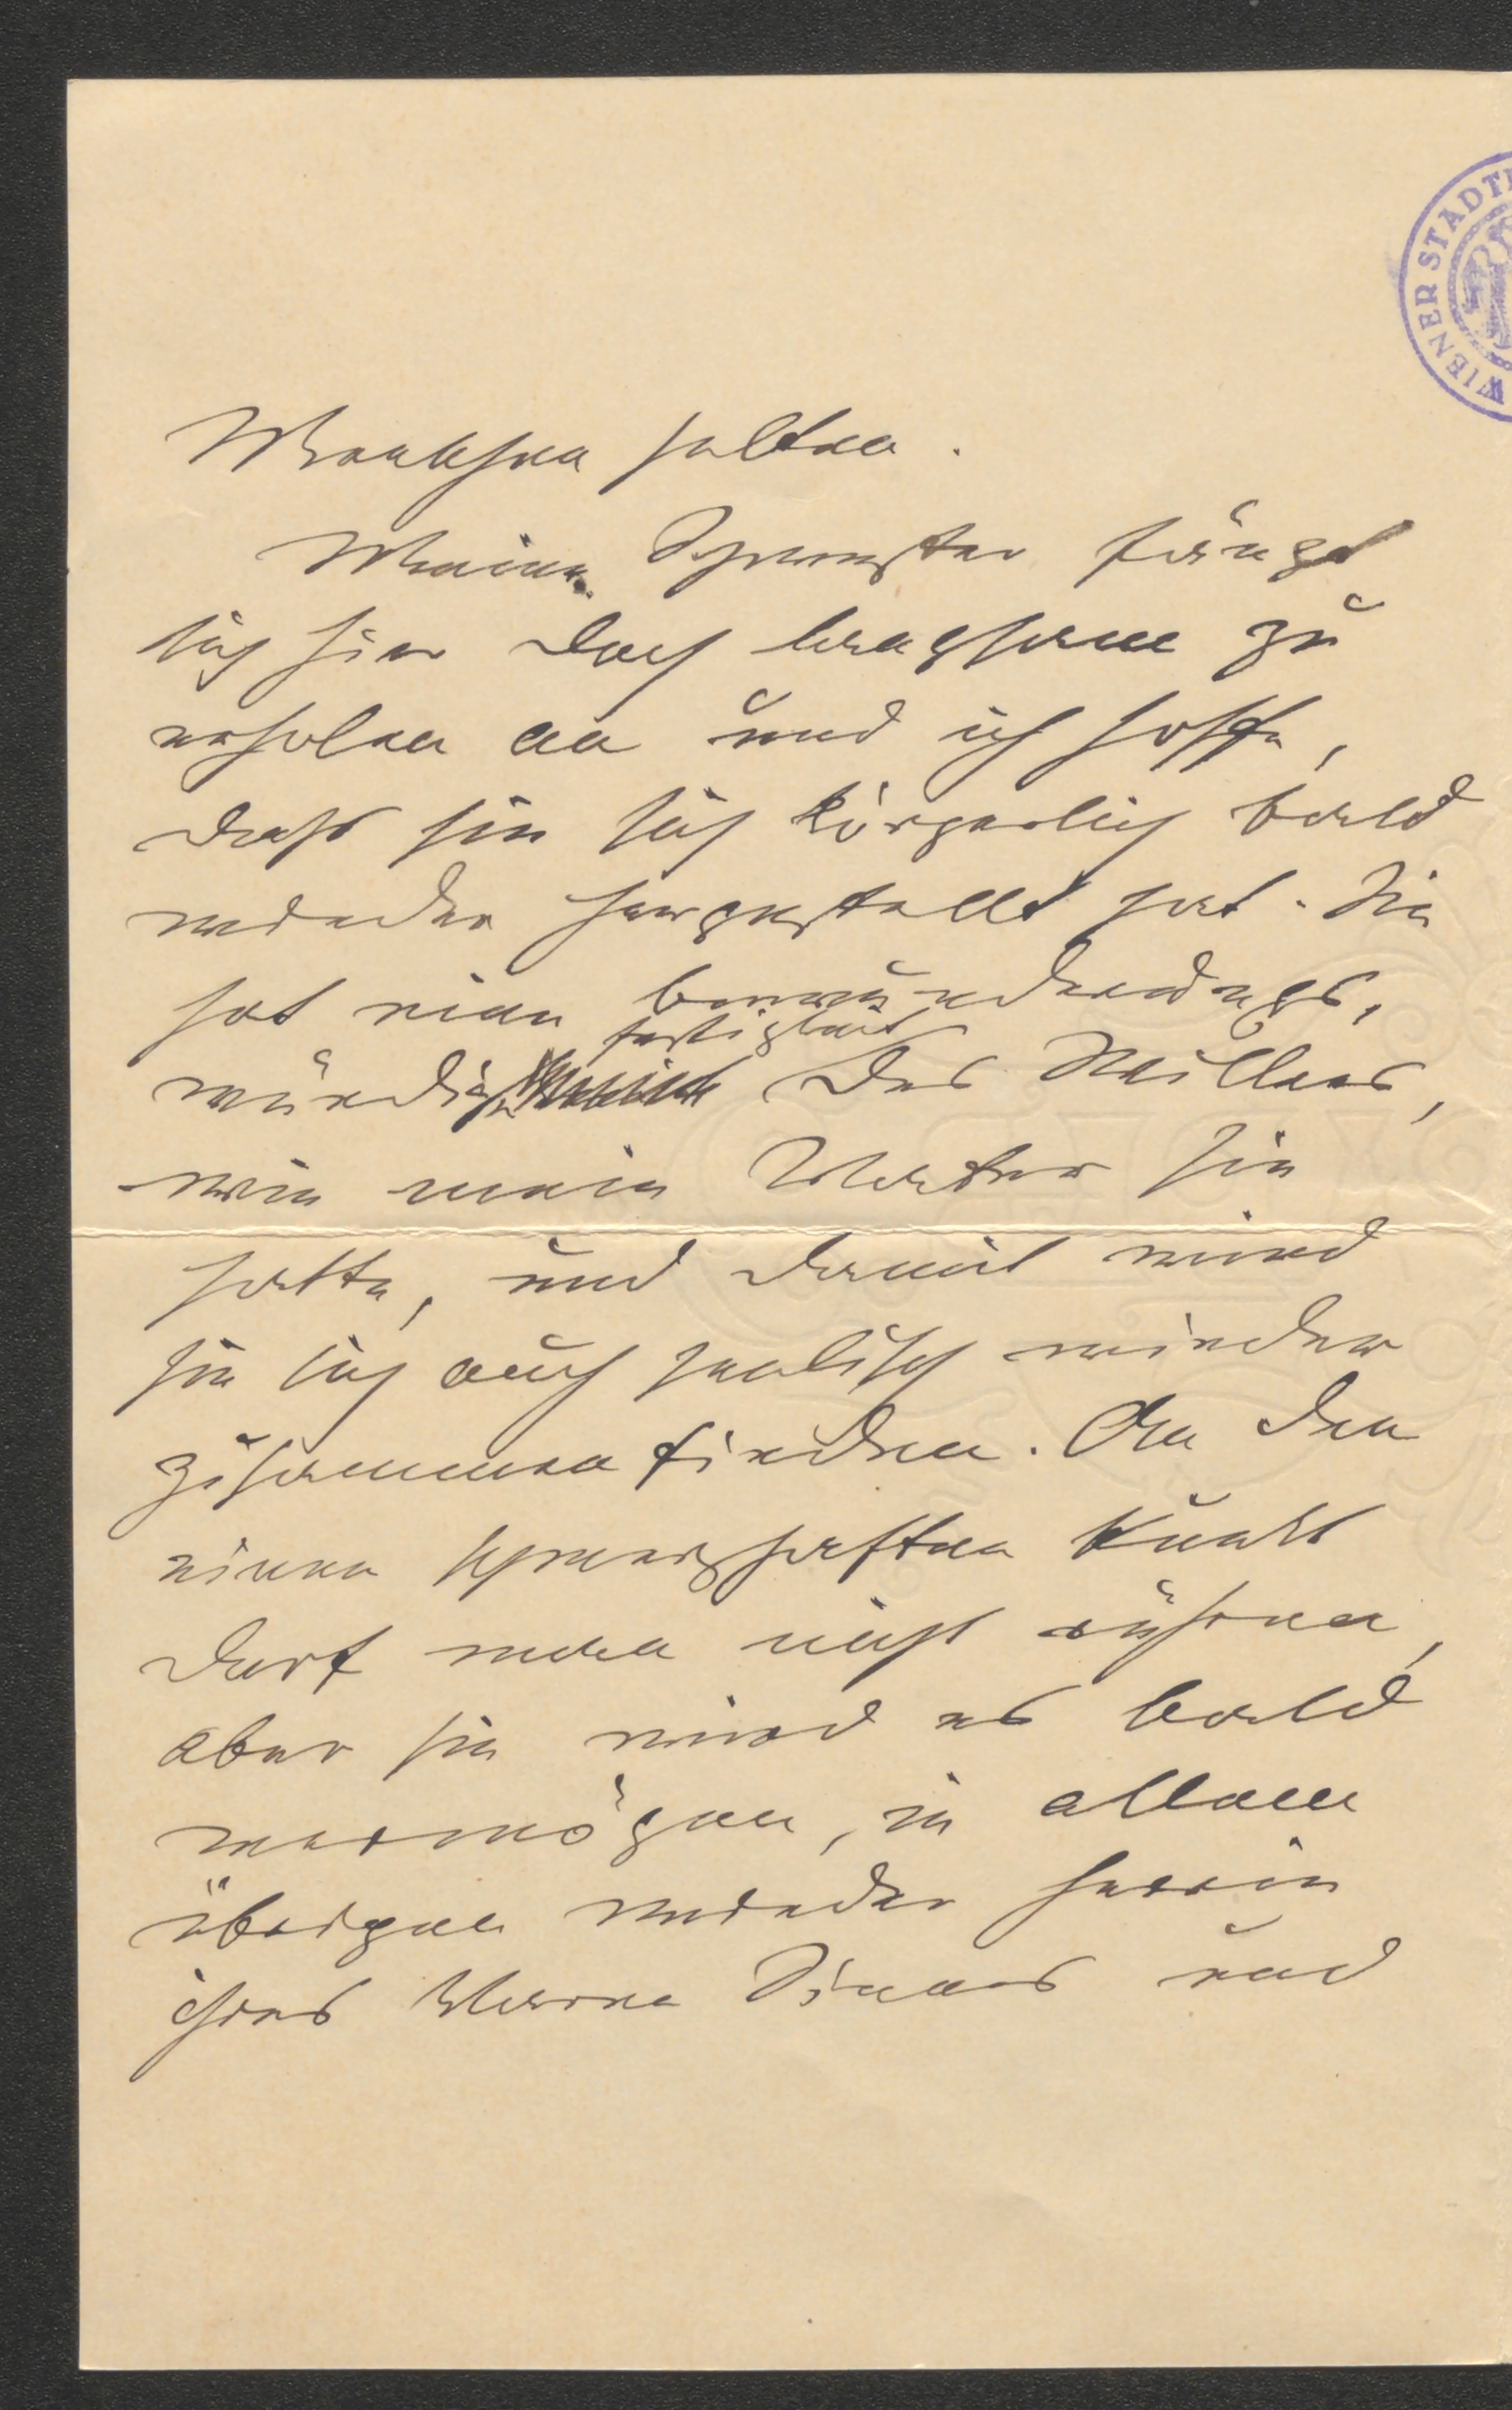 WIENER STADT
Menschen halten.
Meine Schwester fängt
sich hier doch langsam zu
erholen an und ich hoffe,
daß sie sich körperlich bald
wieder hergestellt hat. Sie
hat eine bewunderungs-
würdige festigkeit des Willens,
wie mein Vater sie
hatte, und damit wird
sie sich auch seelisch wieder
zusammenfinden. An den
einen schmerzhaften Punkt
darf man nicht rühren,
aber sie wird es bald
vermögen, in allem
übrigen wieder Herrin
ihres klaren Sinnes und